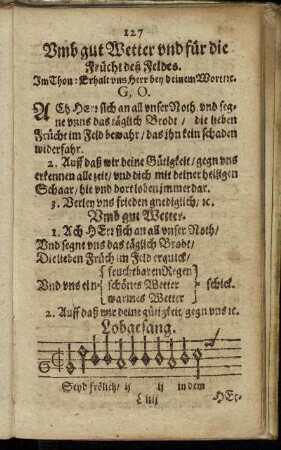 127
Vmb gut Wetter vnd für die
Frücht deß Feldes.
Im Thon: Erhalt vns Herr bey deinem Wort ꝛc.
G. O.
ACh HErr sich an all vnser Noth vnd seg-
ne vnns das täglich Brode / die lieben
Frücht im Feld bewahr / das ihn kein schaden
widerfahr.
2. Auff daß wir deine Gütigkeit / gegn vns
erkennen alle zeit / vnd dich mit deiner heiligen
Schaar / hie vnd dort loben jmmerdar.
3. Verley vns frieden gnediglich / ꝛc.
Vmb gut Wetter.
1. Ach HErr sich an all vnser Noth /
Vnd segne vns das täglich Brodt /
Die lieben Früch im Feld erquick /
Vnd vns ein feuchtbaren Regen
schönes Wetter
warmes Wetter
schick.
2. Auff daß wir deine gütigkeit gegn vns ꝛc.
Lobgesang.
Seyd frölich / ij ij in dem
L iiij HEr-